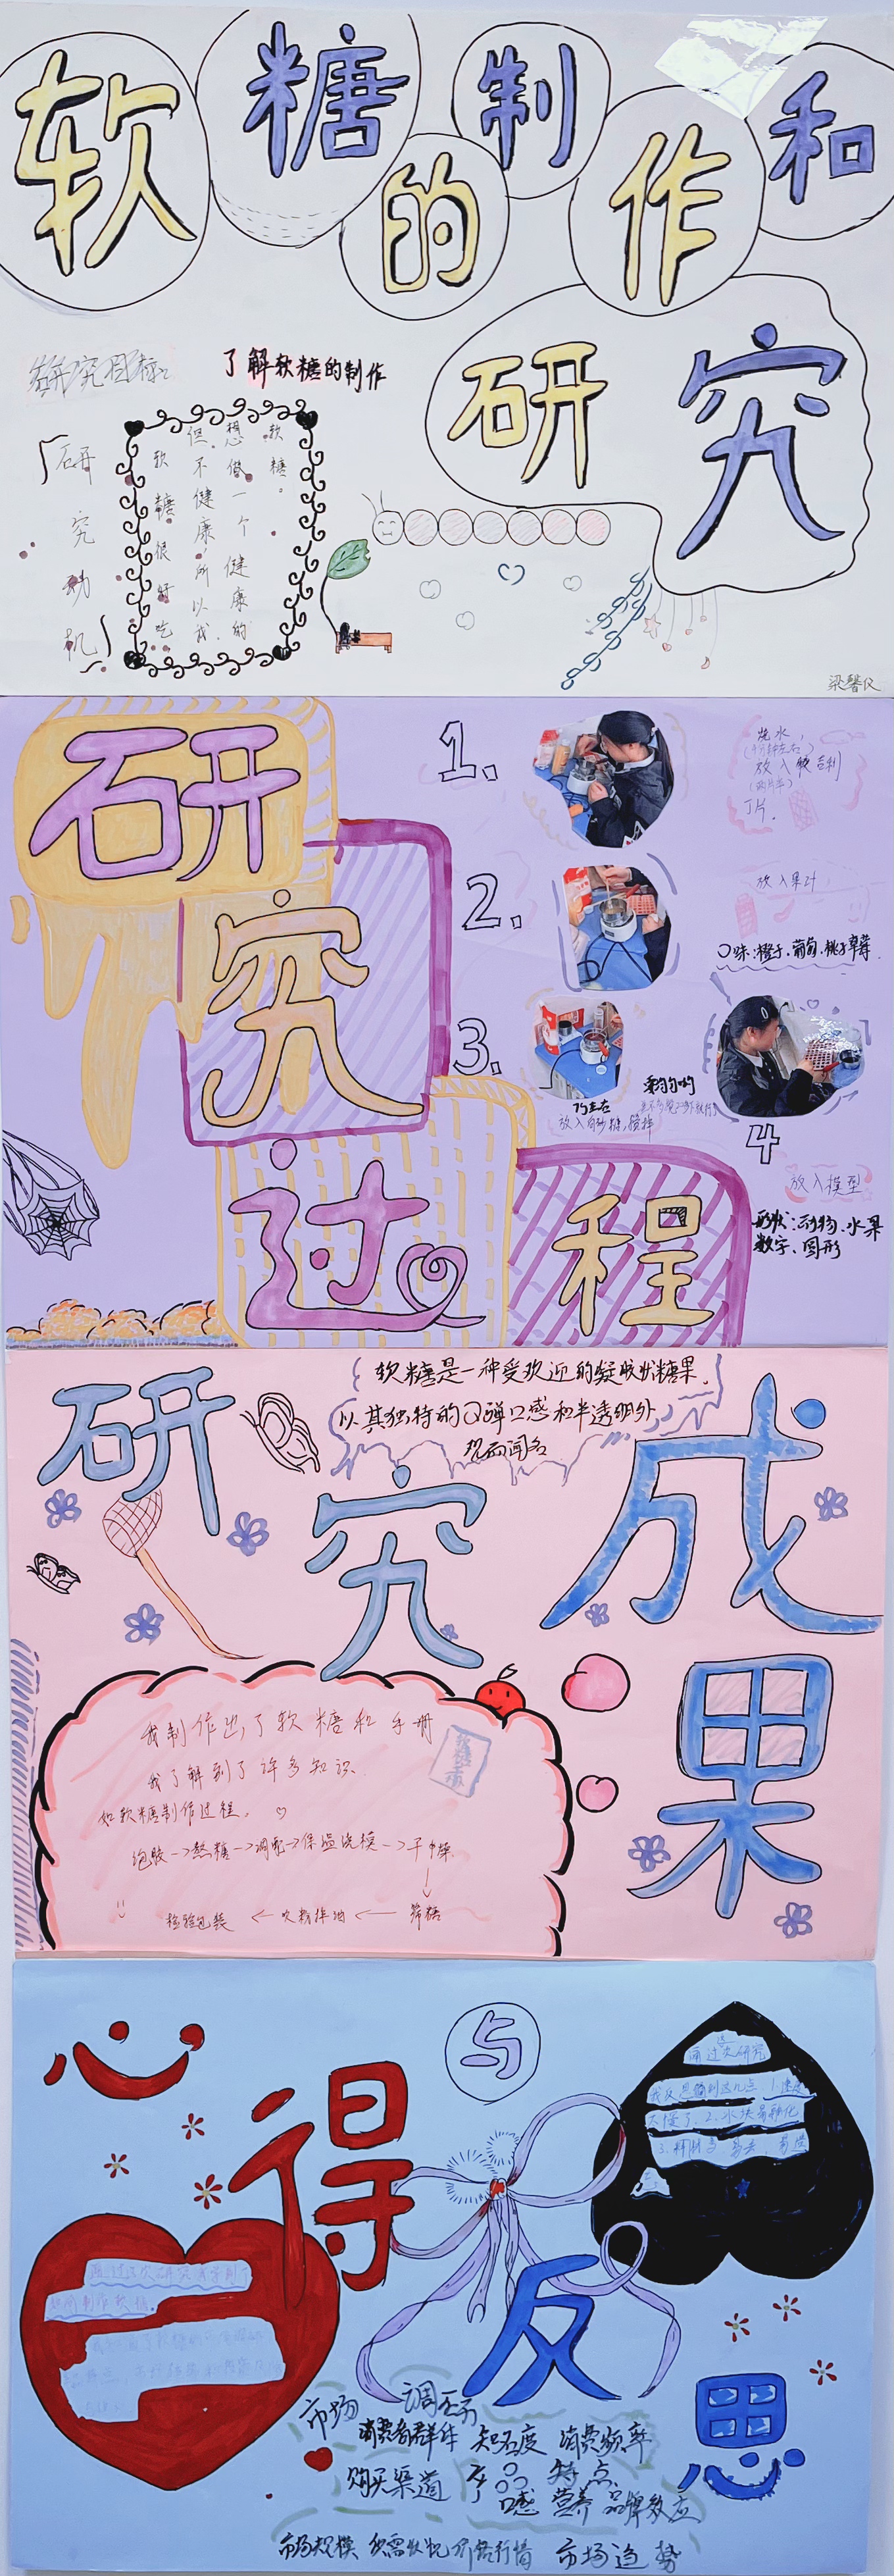 软糖的制作和
研究
研究目标:
了解软糖的制作
「研究动机」
软糖很好吃
但不健康,所以我
想做一个健康的
软糖。
梁馨仪
研究过程
1.
烧水,
放入软吉利
丁片.
2.
放入果汁
口味:橙子、葡萄、桃子、草莓
3.
放入白砂糖,搅拌
4
放入模型
形状:动物、水果
数字、圆形
研究成果
软糖是一种受欢迎的凝胶状糖果,
以其独特的Q弹口感和半透明外
观而闻名
我制作出了软糖和手册
我了解到了许多知识
如软糖制作过程。
泡胶→熬糖→调配→保温浇模→干燥
↓
检验包装←吹粉拌油←筛糖
心得与反思
通过这次研究
我反思到这几点 1.速度
太慢了、2.冰块易融化
通过这次研究我学到了
如何制作软糖。
市场 调查
消费者群体 知名度 消费频率
购买渠道 产品 特点
口感 营养 品牌效应
市场规模 供需状况 价格行情 市场趋势